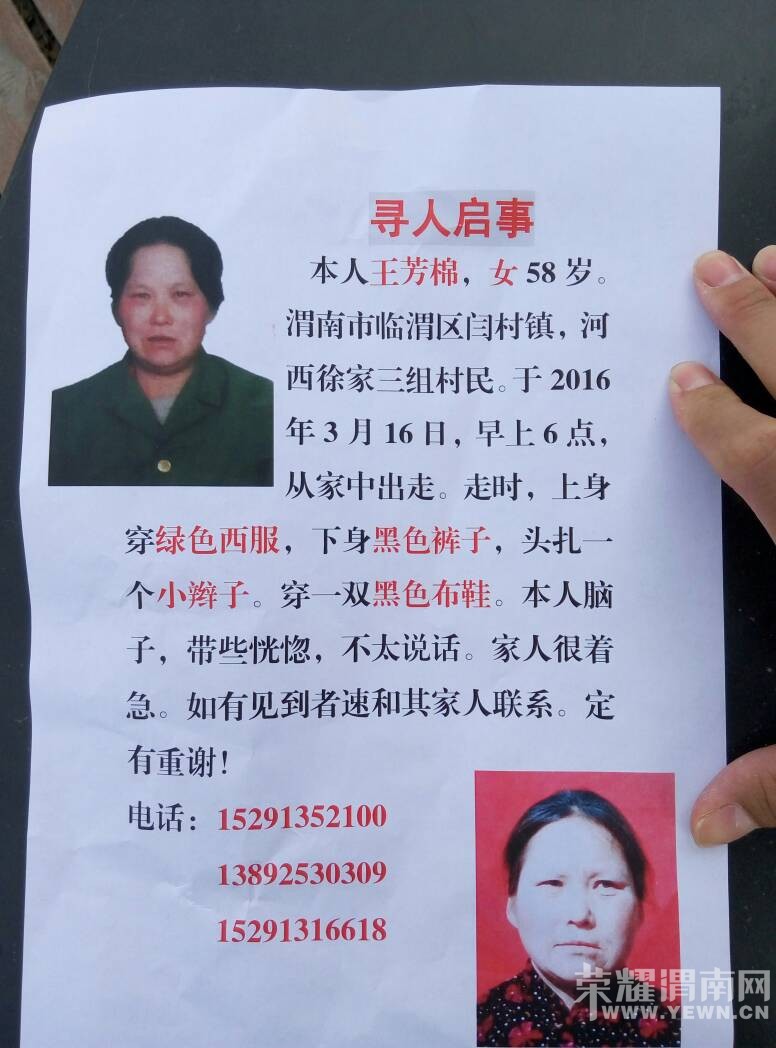 寻人启事
本人王芳棉，女 58 岁。
渭南市临渭区闫村镇，河
西徐家三组村民。于 2016
年 3 月 16 日，早上 6 点，
从家中出走。走时，上身
穿绿色西服，下身黑色裤子，头扎一
个小辫子。穿一双黑色布鞋。本人脑
子，带些恍惚，不太说话。家人很着
急。如有见到者速和其家人联系。定
有重谢！
电话：15291352100
13892530309
15291316618
荣耀渭南网
WWW.YEWN.CN